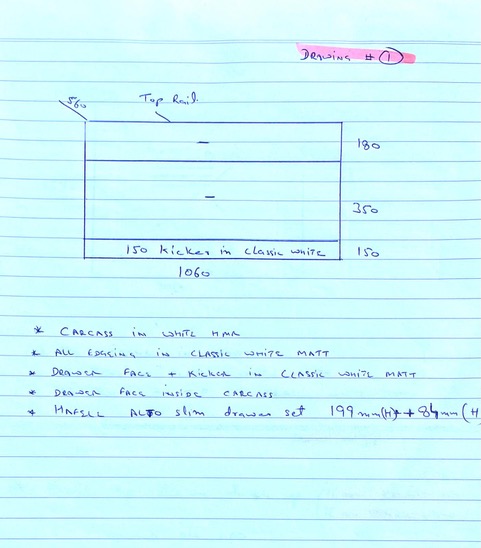 DRAWING # 1
560
Top Rail.
180
350
150 kicker in classic white
150
1060
* CARCASS IN WHITE HMR
* ALL EDGING IN CLASSIC WHITE MATT
* DRAWER FACE + KICKER IN CLASSIC WHITE MATT
* DRAWER FACE INSIDE CARCASS
* HAFELE ALTO slim drawer set 199 mm(H) + 84mm (H